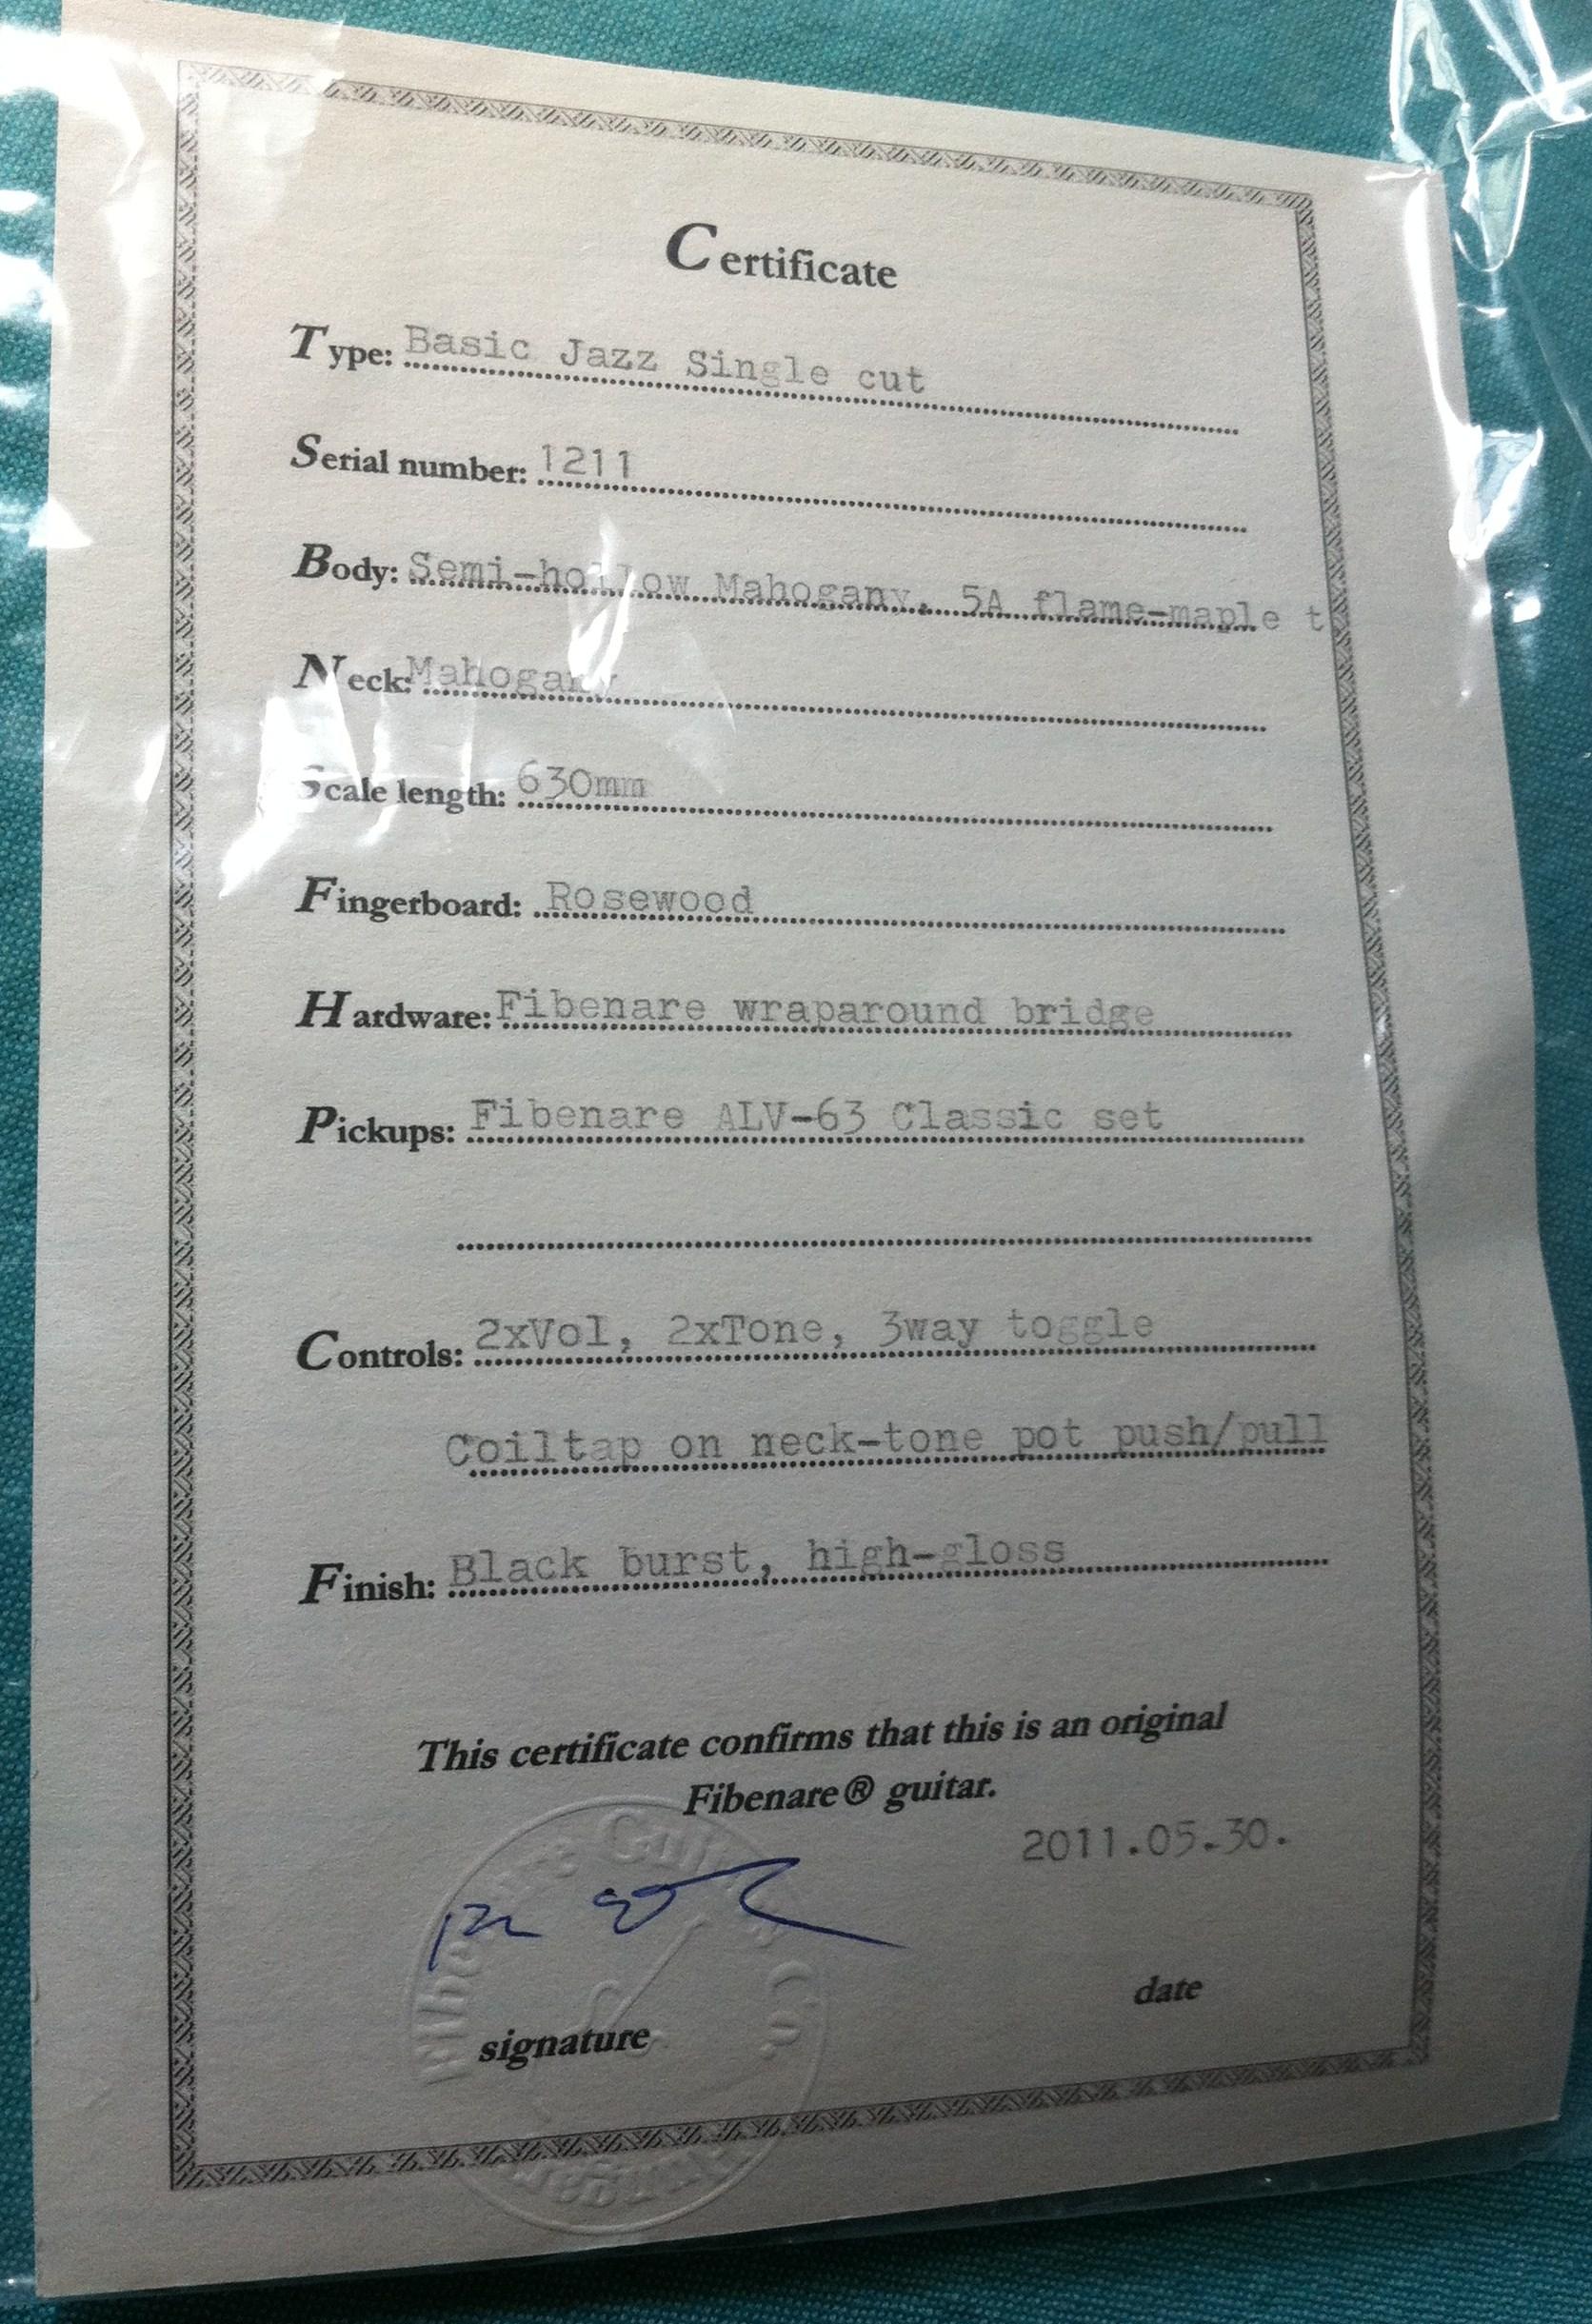 Certificate
Type: Basic Jazz Single cut
Serial number: 1211
Body: Semi-hollow Mahogany, 5A flame-maple t
Neck: Mahogany
Scale length: 630mm
Fingerboard: Rosewood
Hardware: Fibenare wraparound bridge
Pickups: Fibenare ALV-63 Classic set
Controls: 2xVol, 2xTone, 3way toggle
Coiltap on neck-tone pot push/pull
Finish: Black burst, high-gloss
This certificate confirms that this is an original
Fibenare® guitar.
2011.05.30.
date
signature